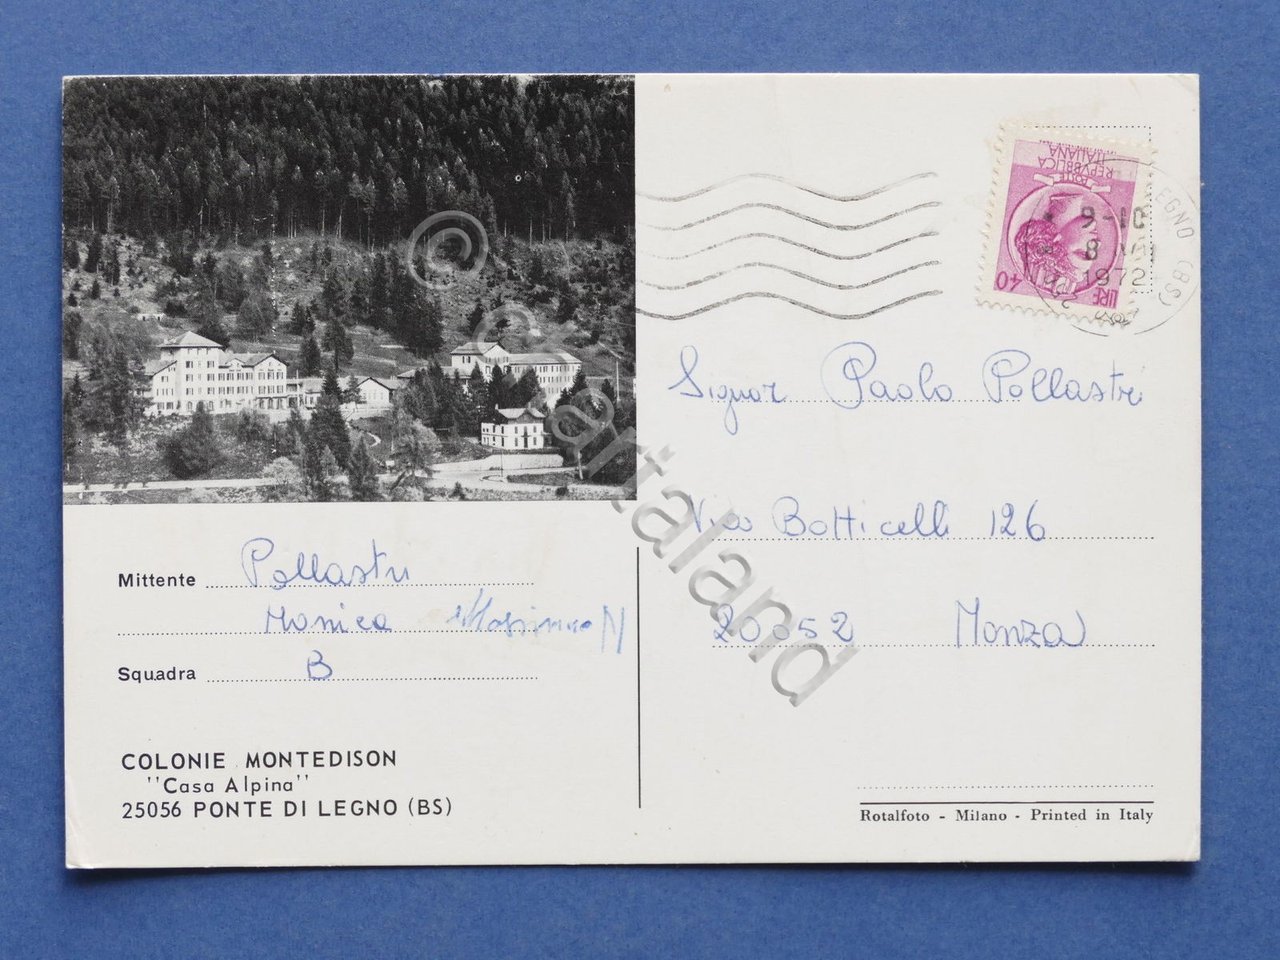 Mittente Pollastri
Monica Massimo N
Squadra B
COLONIE MONTEDISON
"Casa Alpina"
25056 PONTE DI LEGNO (BS)
POSTE
REPVBBLICA
ITALIANA
LIRE 40
9-10
8
1972
EGNO (BS)
Signor Paolo Pollastri
Via Botticelli 126
20052 Monza
Rotalfoto - Milano - Printed in Italy
© Cartaland